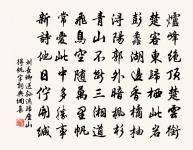 爐峰絕頂楚雲銜
楚客東歸棲此巖
彭蠡湖邊香橘柚
潯陽郭外暗楓杉
青山不斷三湘道
飛鳥空隨萬里帆
常愛此中多勝事
新詩他日佇開緘
劉長卿送孫逸歸廬山
得帆字詞典網集